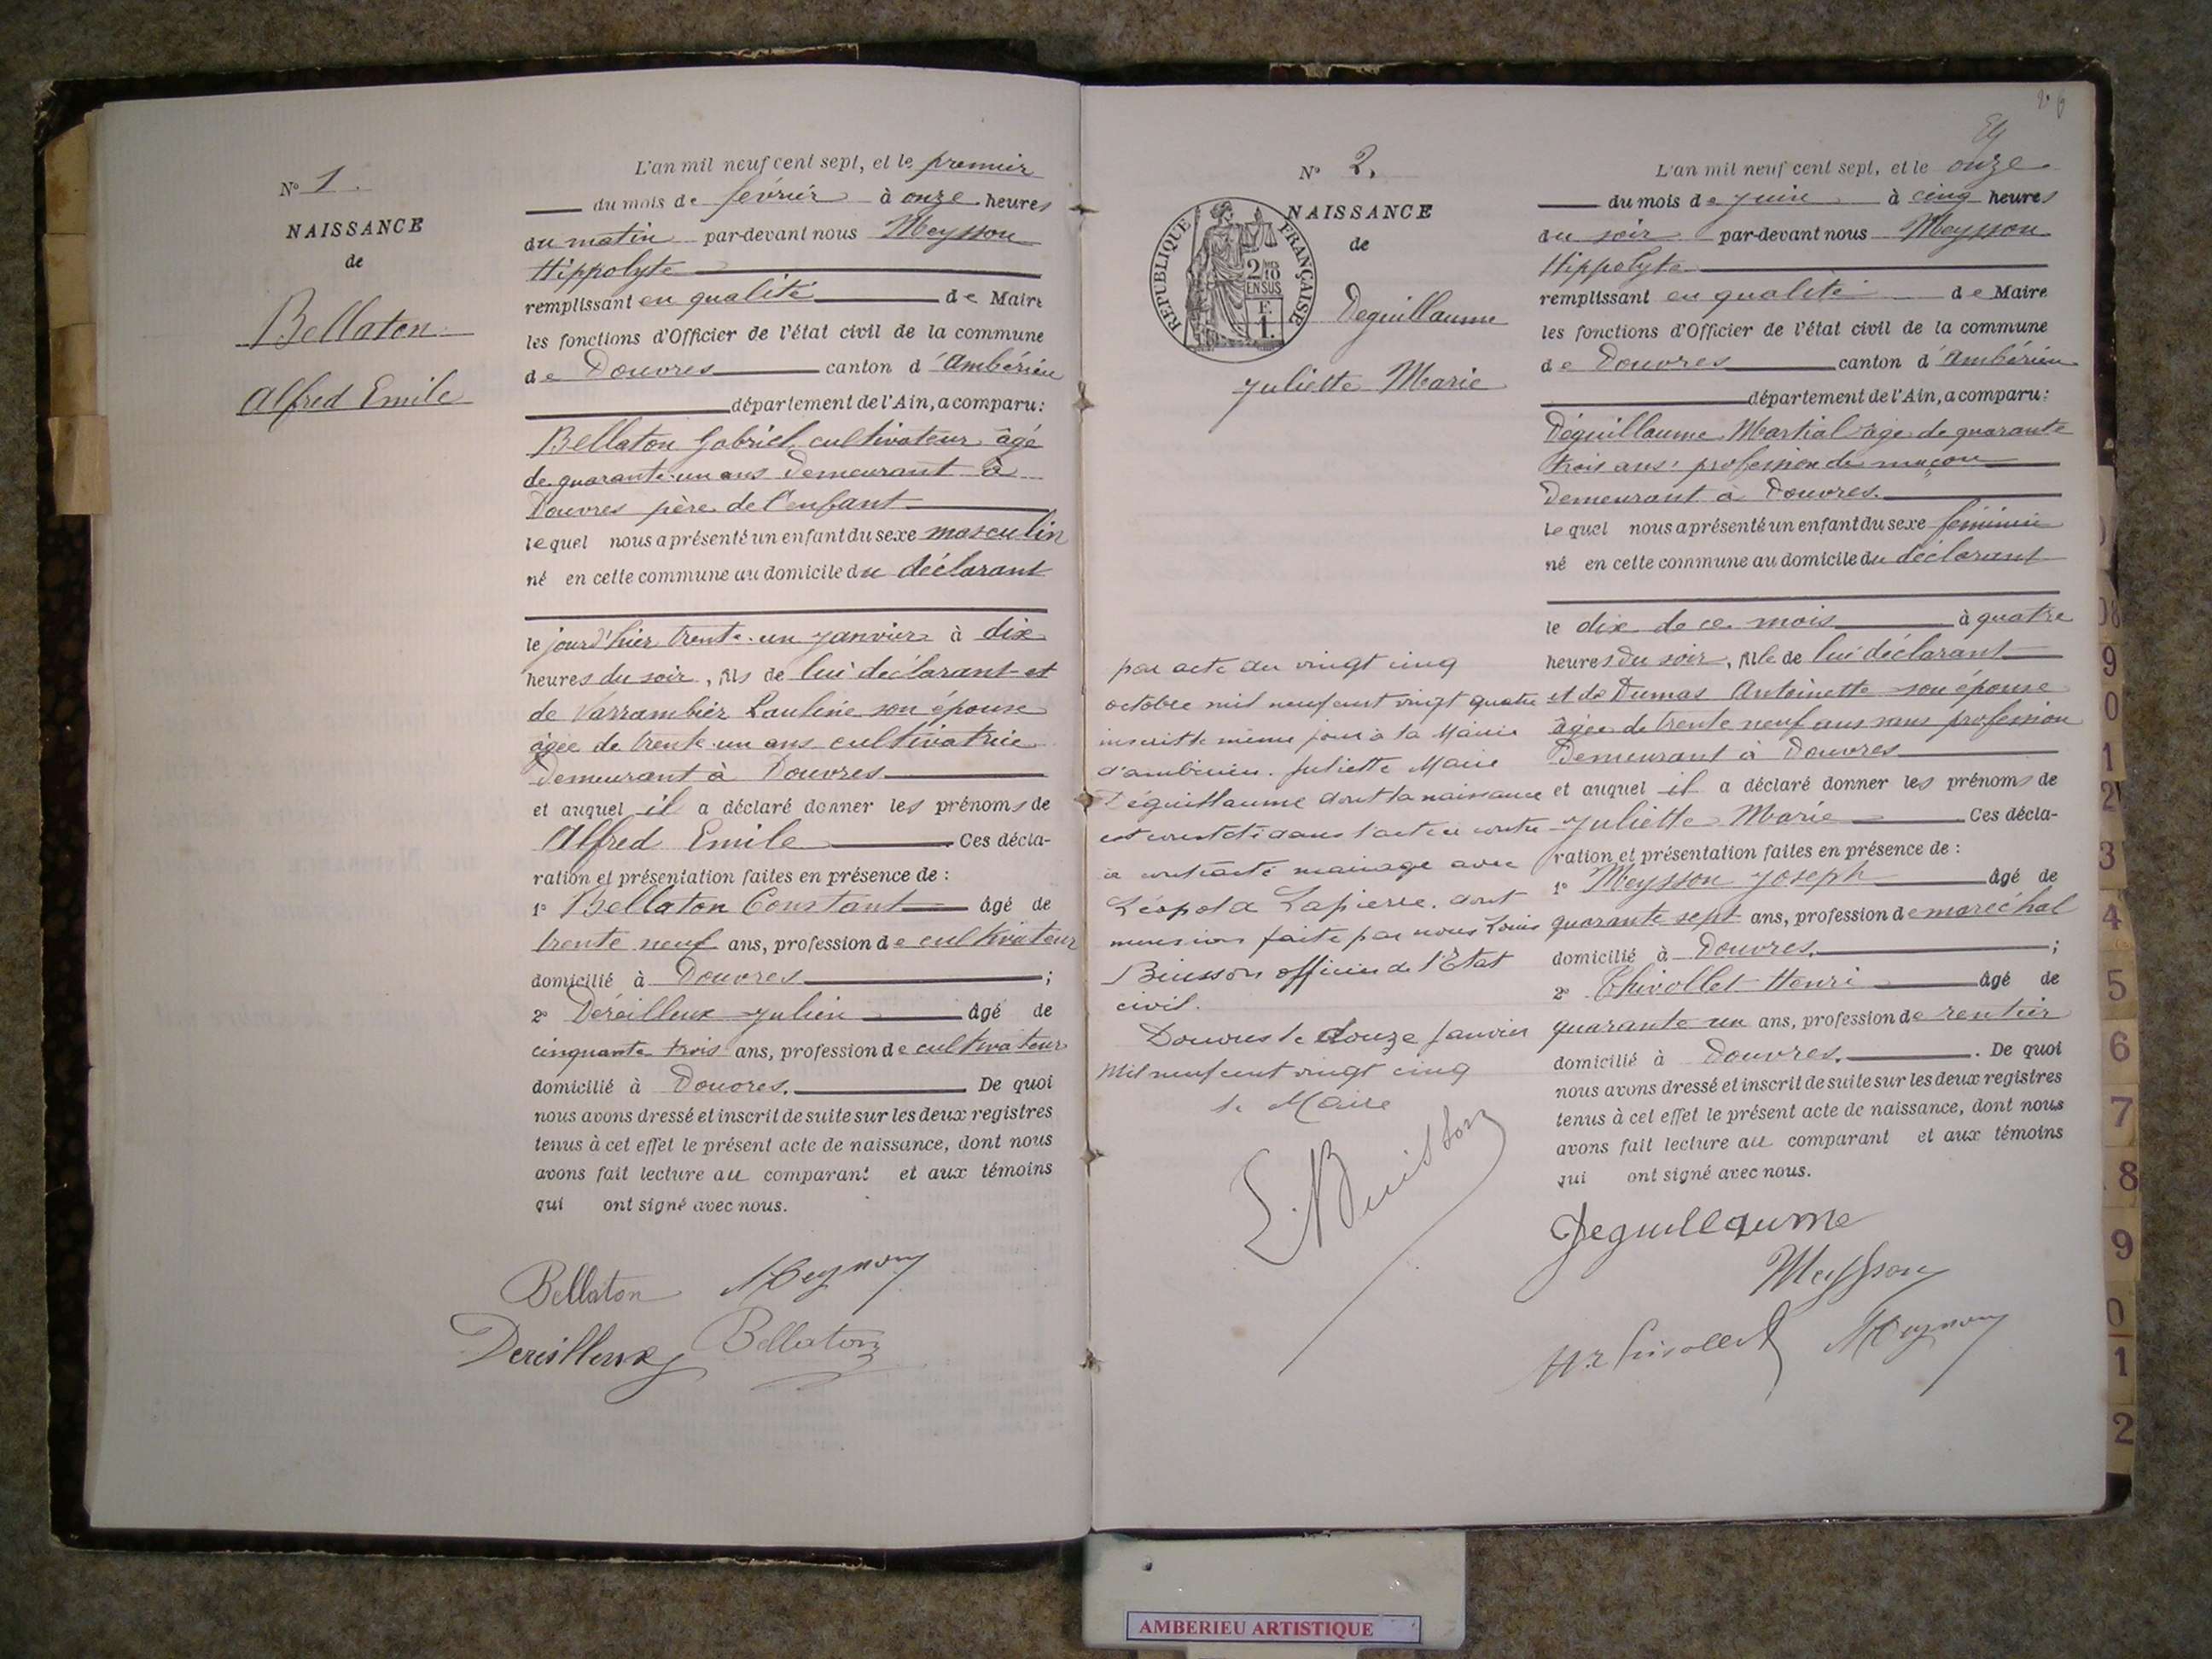 N° 1.
NAISSANCE
de
Bellaton
Alfred Emile
L'an mil neuf cent sept, et le premier
du mois de février à onze heures
du matin par-devant nous Meysson
Hippolyte
remplissant en qualité de Maire
les fonctions d'Officier de l'état civil de la commune
de Douvres canton d'Ambérieu
département de l'Ain, a comparu :
Bellaton Gabriel cultivateur âgé
de quarante-un ans demeurant à
Douvres père de l'enfant
lequel nous a présenté un enfant du sexe masculin
né en cette commune au domicile du déclarant
le jour d'hier trente-un janvier à dix
heures du soir, fils de lui déclarant et
de Varrambier Pauline son épouse
âgée de trente-un ans cultivatrice
demeurant à Douvres
et auquel il a déclaré donner les prénoms de
Alfred Emile Ces décla-
ration et présentation faites en présence de :
1° Bellaton Constant âgé de
trente neuf ans, profession de cultivateur
domicilié à Douvres ;
2° Déreilleux Julien âgé de
cinquante trois ans, profession de cultivateur
domicilié à Douvres. De quoi
nous avons dressé et inscrit de suite sur les deux registres
tenus à cet effet le présent acte de naissance, dont nous
avons fait lecture au comparant et aux témoins
qui ont signé avec nous.
Bellaton Meysson
Dereilleux Bellaton
N° 2.
NAISSANCE
de
RÉPUBLIQUE FRANÇAISE
2/10
EN SUS
F.
1.
Deguillaume
Juliette Marie
par acte du vingt cinq
octobre mil neuf cent vingt quatre
inscrit le même jour à la Mairie
d'ambérieu. Juliette Marie
Déguillaume dont la naissance
est constaté dans l'acte ci contre
a contracté mariage avec
Léopold Lapierre. dont
mension faite par nous Louis
Buisson officier de l'Etat
civil.
Douvres le douze Janvier
Mil neuf cent vingt cinq
le Maire
L. Buisson
L'an mil neuf cent sept, et le onze
du mois de juin à cinq heures
du soir par-devant nous Meysson
Hippolyte
remplissant en qualité de Maire
les fonctions d'Officier de l'état civil de la commune
de Douvres canton d'Ambérieu
département de l'Ain, a comparu :
Déguillaume Martial âgé de quarante
trois ans, profession de maçon
demeurant à Douvres.
Lequel nous a présenté un enfant du sexe féminin
né en cette commune au domicile du déclarant
le dix de ce mois à quatre
heures du soir, fille de lui déclarant
et de Dumas Antoinette son épouse
âgée de trente neuf ans sans profession
demeurant à Douvres
et auquel il a déclaré donner les prénoms de
Juliette Marie Ces décla-
ration et présentation faites en présence de :
1° Meysson Joseph âgé de
quarante sept ans, profession de maréchal
domicilié à Douvres. ;
2° Chivollet Henri âgé de
quarante un ans, profession de rentier
domicilié à Douvres. De quoi
nous avons dressé et inscrit de suite sur les deux registres
tenus à cet effet le présent acte de naissance, dont nous
avons fait lecture au comparant et aux témoins
qui ont signé avec nous.
Deguillaume
Meysson
Meysson
9
0
1
2
3
4
5
6
7
8
9
0
1
2
AMBERIEU ARTISTIQUE